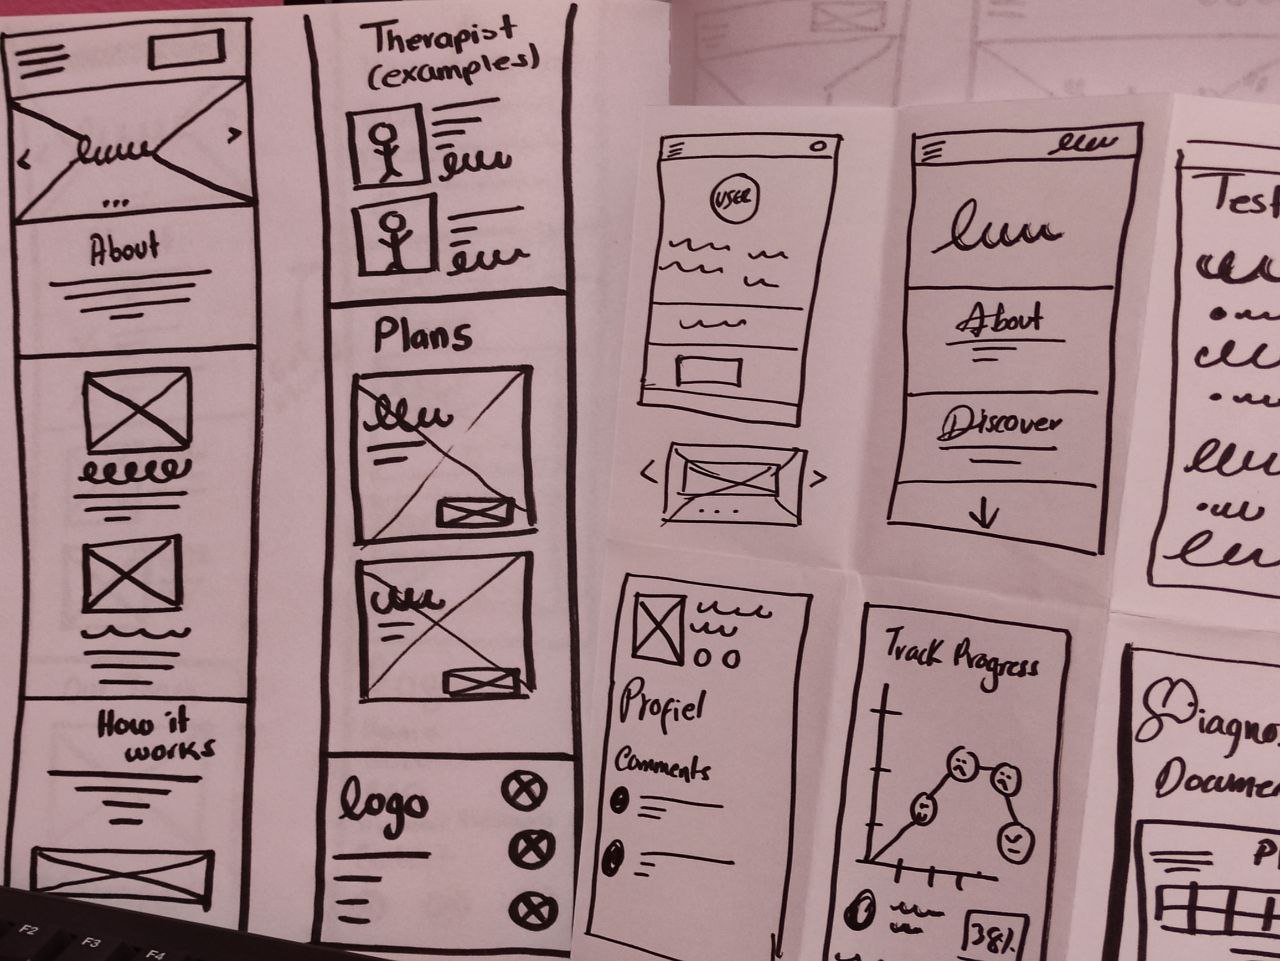 About
How it
works
Therapist
(examples)
Plans
logo
USER
About
Discover
Test
Profiel
Comments
Track Progress
38%
Diagno
Documen
P
F2
F3
F4